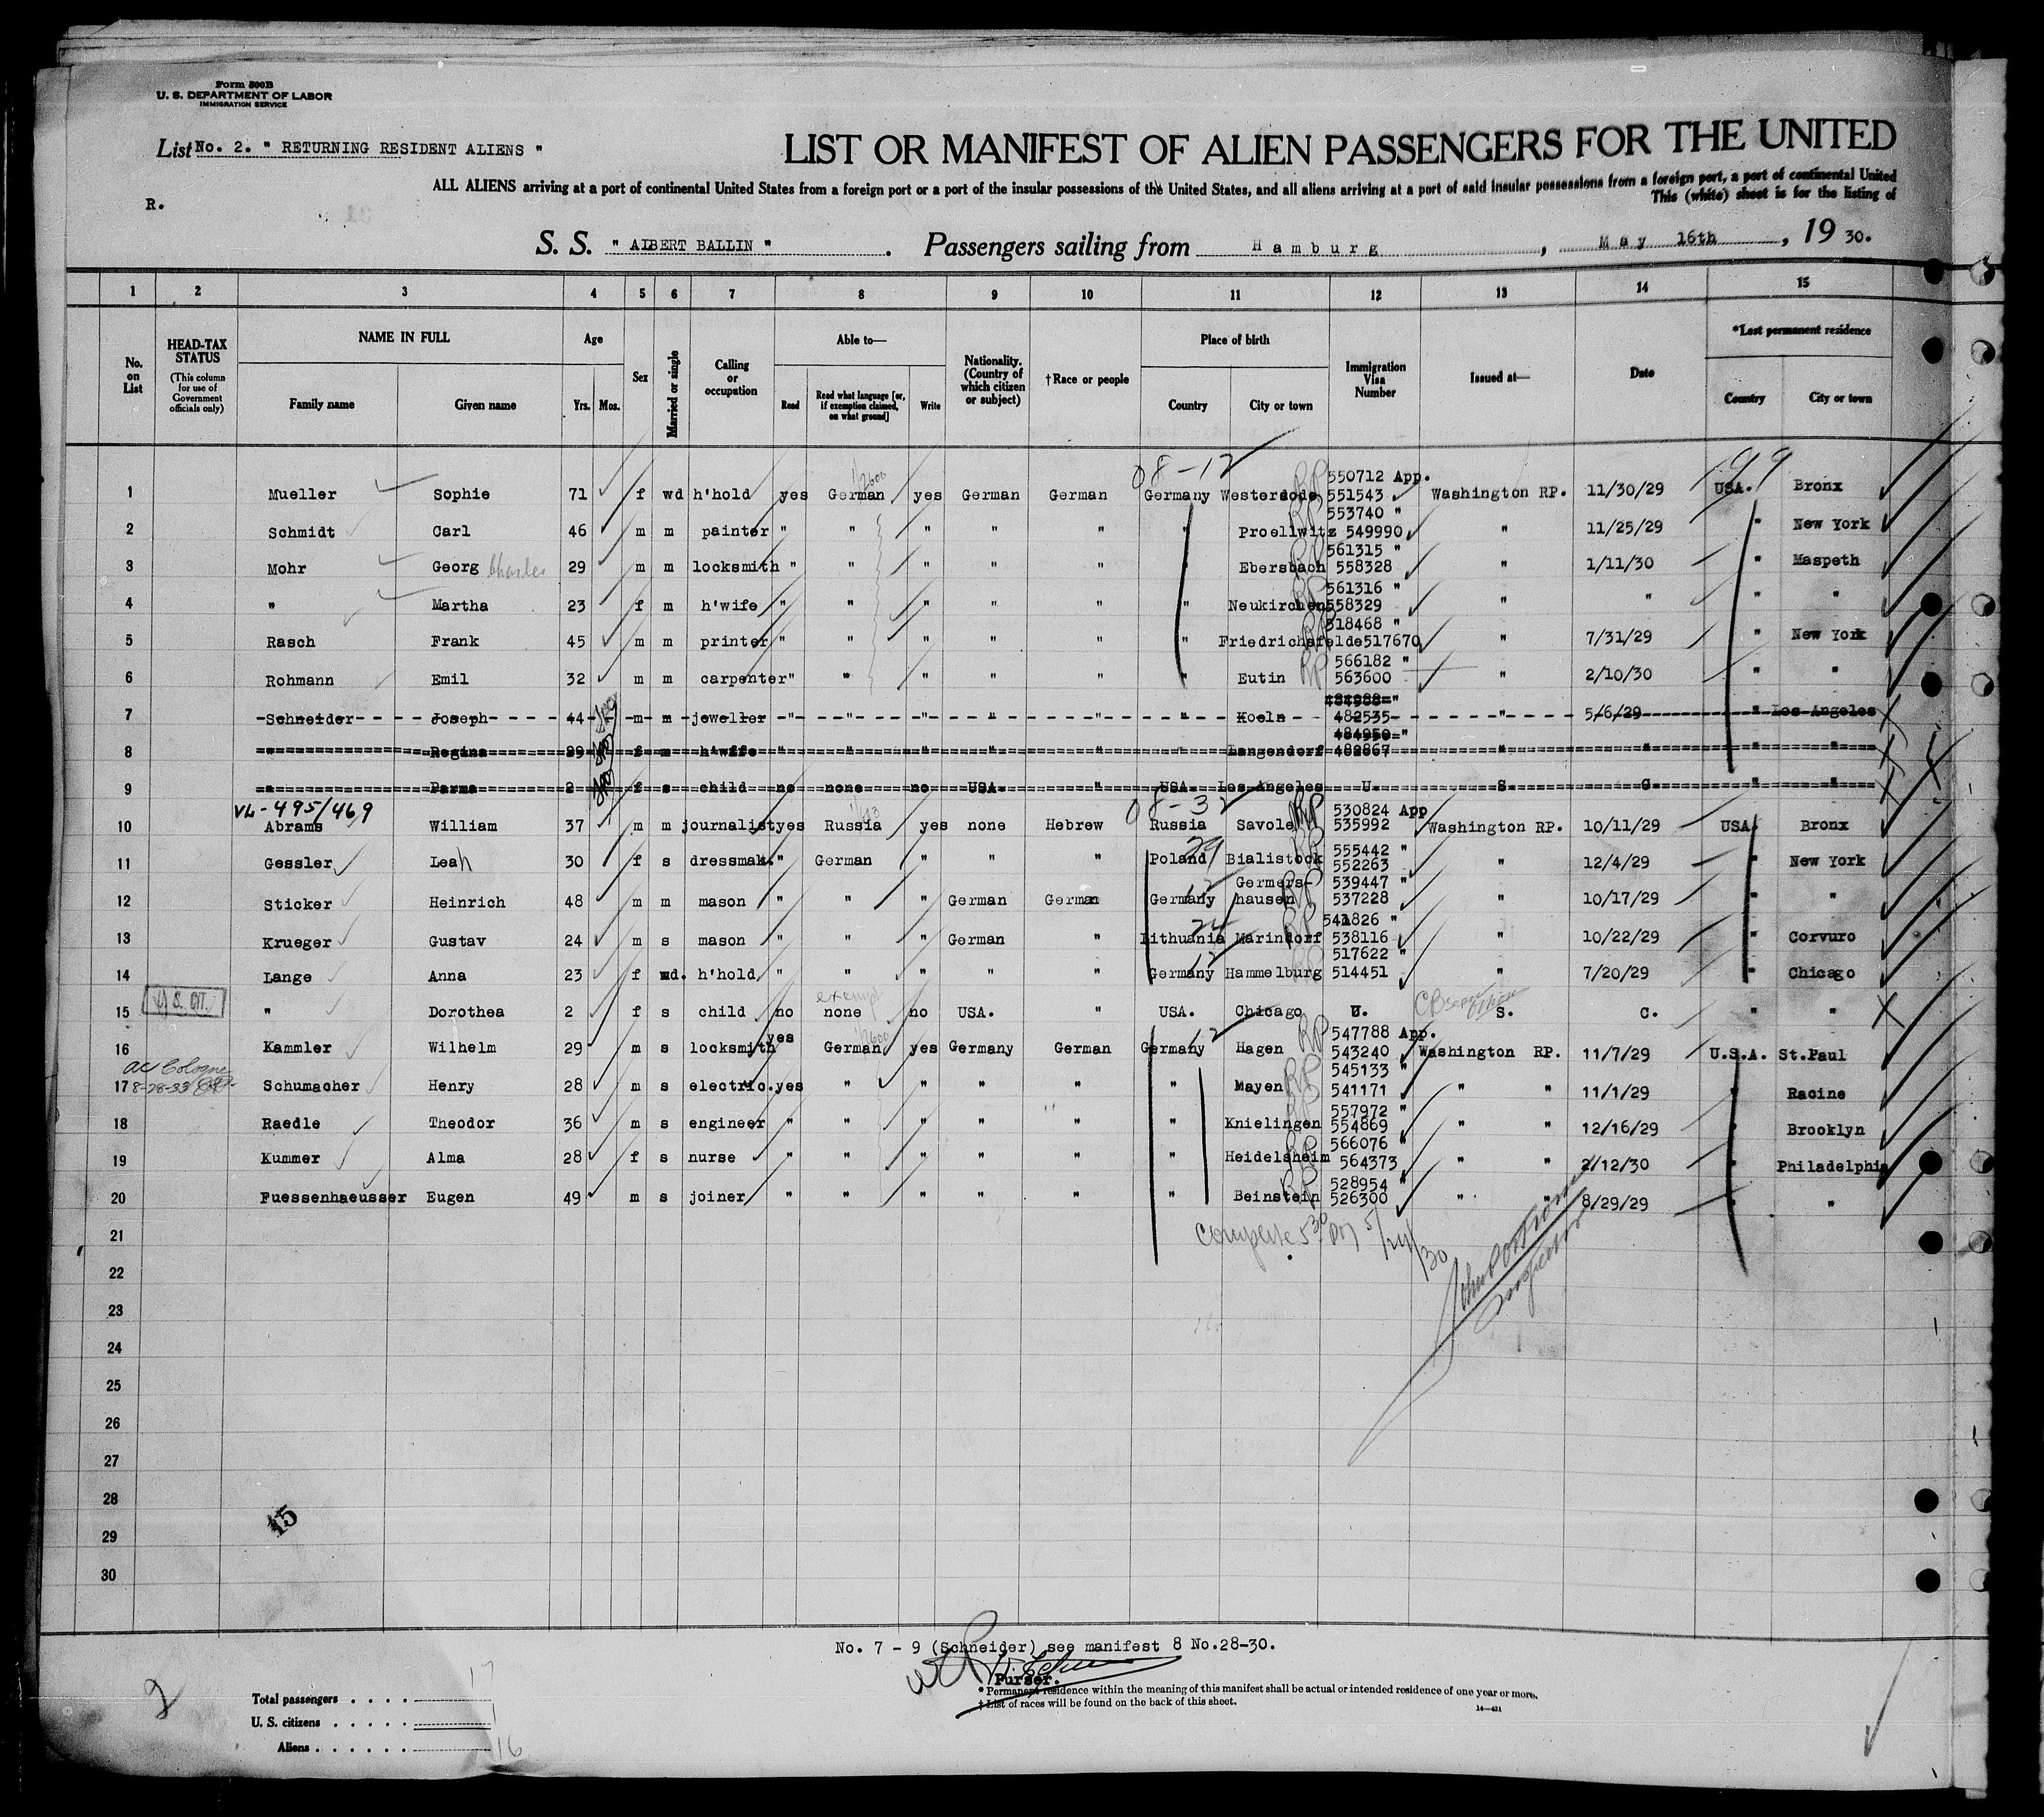 Form 500B
U. S. DEPARTMENT OF LABOR
IMMIGRATION SERVICE
List No. 2. " RETURNING RESIDENT ALIENS "
LIST OR MANIFEST OF ALIEN PASSENGERS FOR THE UNITED
ALL ALIENS arriving at a port of continental United States from a foreign port or a port of the insular possessions of the United States, and all aliens arriving at a port of said insular possessions from a foreign port, a port of continental United
This (white) sheet is for the listing of
R.
S. S. " ALBERT BALLIN " . Passengers sailing from Hamburg , May 16th , 19 30.
1 2 3 4 5 6 7 8 9 10 11 12 13 14 15
No. on List
HEAD-TAX STATUS (This column for use of Government officials only)
NAME IN FULL
Family name Given name
Age
Yrs. Mos.
Sex
Married or single
Calling or occupation
Able to—
Read Read what language [or, if exemption claimed, on what ground] Write
Nationality. (Country of which citizen or subject)
†Race or people
Place of birth
Country City or town
Immigration Visa Number
Issued at—
Date
*Last permanent residence
Country City or town
08-12 199
550712 App.
1 Mueller Sophie 71 f wd h'hold yes German yes German German Germany Westersode RP 551543 Washington RP. 11/30/29 USA. Bronx
553740 "
2 Schmidt Carl 46 m m painter " " " " " " Proellwitz 549990 " 11/25/29 " New York
561315 "
3 Mohr Georg Charles 29 m m locksmith " " " " " " Ebersbach 558328 " 1/11/30 " Maspeth
561316 "
4 " Martha 23 f m h'wife " " " " " " Neukirchen 558329 " " " "
518468 "
5 Rasch Frank 45 m m printer " " " " " " Friedrichsfelde 517670 " 7/31/29 " New York
566182 "
6 Rohmann Emil 32 m m carpenter " " " " " " Eutin 563600 " 2/10/30 " "
484988 "
7 Schneider Joseph 44 m m jeweller " " " " " " Koeln 482535 " 5/6/29 " Los Angeles
484950 "
8 " Regina 29 f m h'wife " " " " " " Langendorf 482867 " " " "
9 " Parma 2 f s child no none no USA. " USA. Los Angeles U. S. C. " "
VL-495/469 08-32
530824 App
10 Abrams William 37 m m journalist yes Russia yes none Hebrew Russia Savole RP 535992 Washington RP. 10/11/29 USA. Bronx
555442 "
11 Gessler Leah 30 f s dressmak. " German " " " Poland Bialistock 552263 " 12/4/29 " New York
Germers- 539447 "
12 Sticker Heinrich 48 m m mason " " " German German Germany hausen 537228 " 10/17/29 " "
541826 "
13 Krueger Gustav 24 m s mason " " " German " Lithuania Marindorf 538116 " 10/22/29 " Corvuro
517622 "
14 Lange Anna 23 f wd. h'hold " " " " " Germany Hammelburg 514451 " 7/20/29 " Chicago
U. S. CIT. exempt
15 " Dorothea 2 f s child no none no USA. " USA. Chicago U. S. C. " "
547788 App.
16 Kammler Wilhelm 29 m s locksmith yes German yes Germany German Germany Hagen RP 543240 Washington RP. 11/7/29 U.S.A. St.Paul
ac Cologne
545133 "
17 8-28-33 Schumacher Henry 28 m s electric. yes " " " " " Mayen 541171 " " 11/1/29 " Racine
557972 "
18 Raedle Theodor 36 m s engineer " " " " " " Knielingen 554869 " " 12/16/29 " Brooklyn
566076 "
19 Kummer Alma 28 f s nurse " " " " " " Heidelsheim 564373 " " 2/12/30 " Philadelphia
528954 "
20 Fuessenhaeusser Eugen 49 m s joiner " " " " " Beinstein 526300 " " 8/29/29 " "
21 Complete 5 30 PM 5/24/30
22
23
24
25
26
27
28
29
30
Inspector
15
No. 7 - 9 (Schneider) see manifest 8 No.28-30.
Purser.
* Permanent residence within the meaning of this manifest shall be actual or intended residence of one year or more.
† List of races will be found on the back of this sheet.
14—431
2
Total passengers . . . . 17
U. S. citizens . . . . . 1
Aliens . . . . . . 16